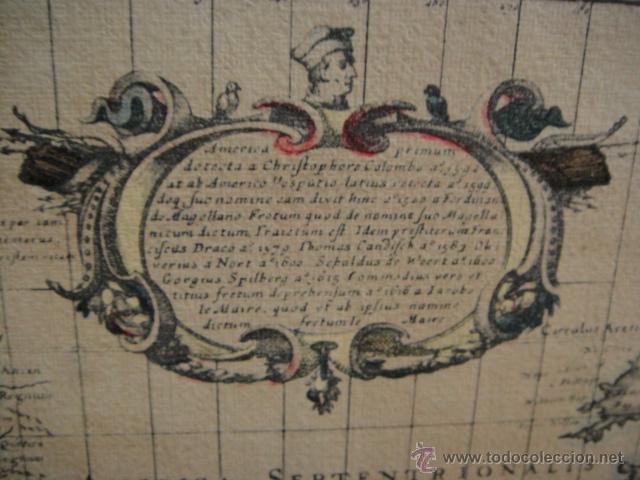 America primum
detecta a Christophoro Colombo aº 1592
at ab Americo Vesputio latius retecta aº 1599
deq; suo nomine eam dixit hinc aº 1520 a Ferdinan
do Magellano Fretum quod de nomine suo Magella
nicum dictum Traiectum est. Idem prestiterum Fran
ciscus Draco aº 1579 Thomas Candisch aº 1583 Oli
verius a Nort aº 1600. Sebaldus de Weert aº 1600
Gorgius Spilberg aº 1615 Commodius vero et
titius fretum deprehensum aº 1616 a Iacobo
le Maire, quod et ab ipsius nomine
dictum fretum le Maire.
Circulus
SEPTENTRIONALI
© www.todocoleccion.net